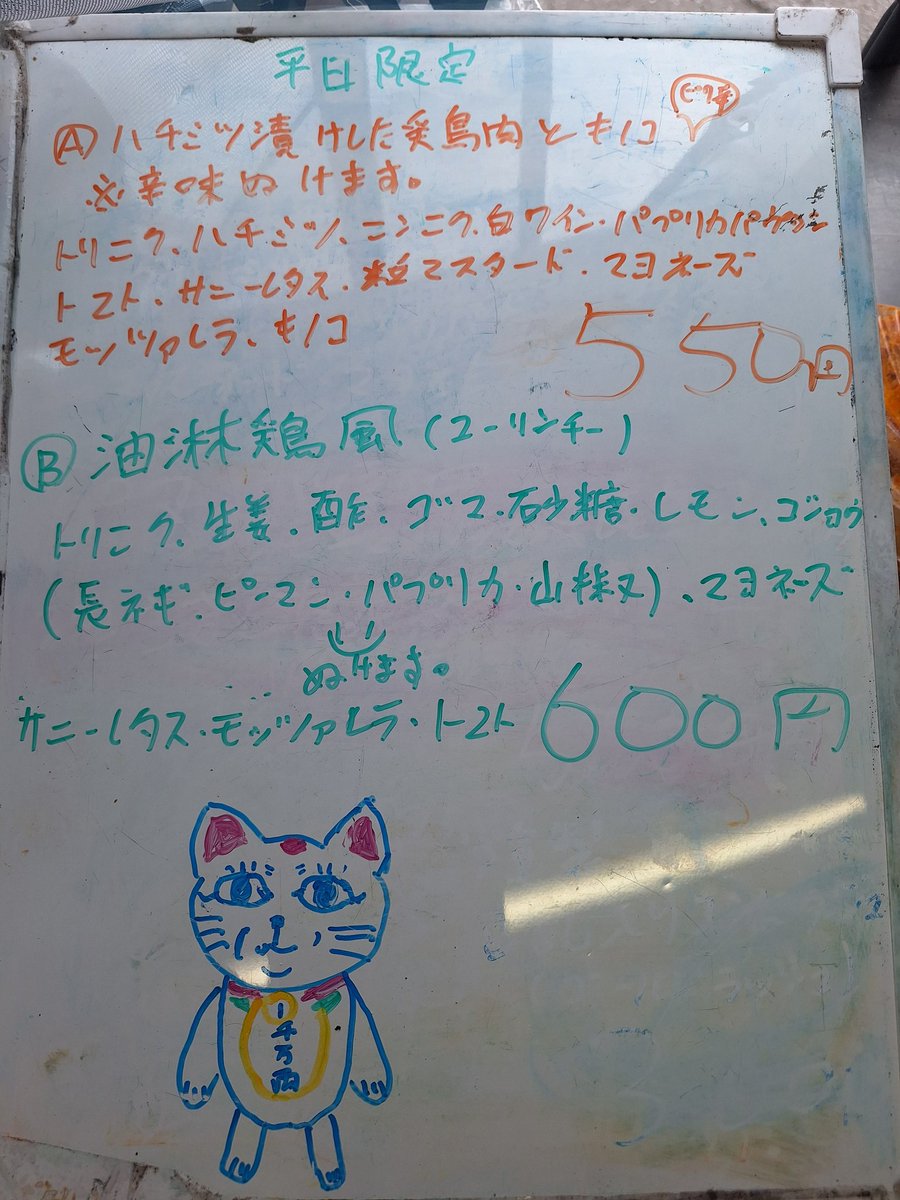 平日限定
Ⓐハチミツ漬けした炙鳥肉とキノコ ピリ辛
※辛味ぬけます。
トリニク、ハチミツ、ニンニク、白ワイン・パプリカパウダー
トマト、サニーレタス、粒マスタード、マヨネーズ
モッツァレラ、キノコ
550円
Ⓑ油淋鶏風(ユーリンチー)
トリニク、生姜、酢、ゴマ、砂糖・レモン、コショウ
(長ネギ、ピーマン・パプリカ・山椒)、マヨネーズ
ぬけます。
サニーレタス・モッツァレラ・トマト 600円
千万両